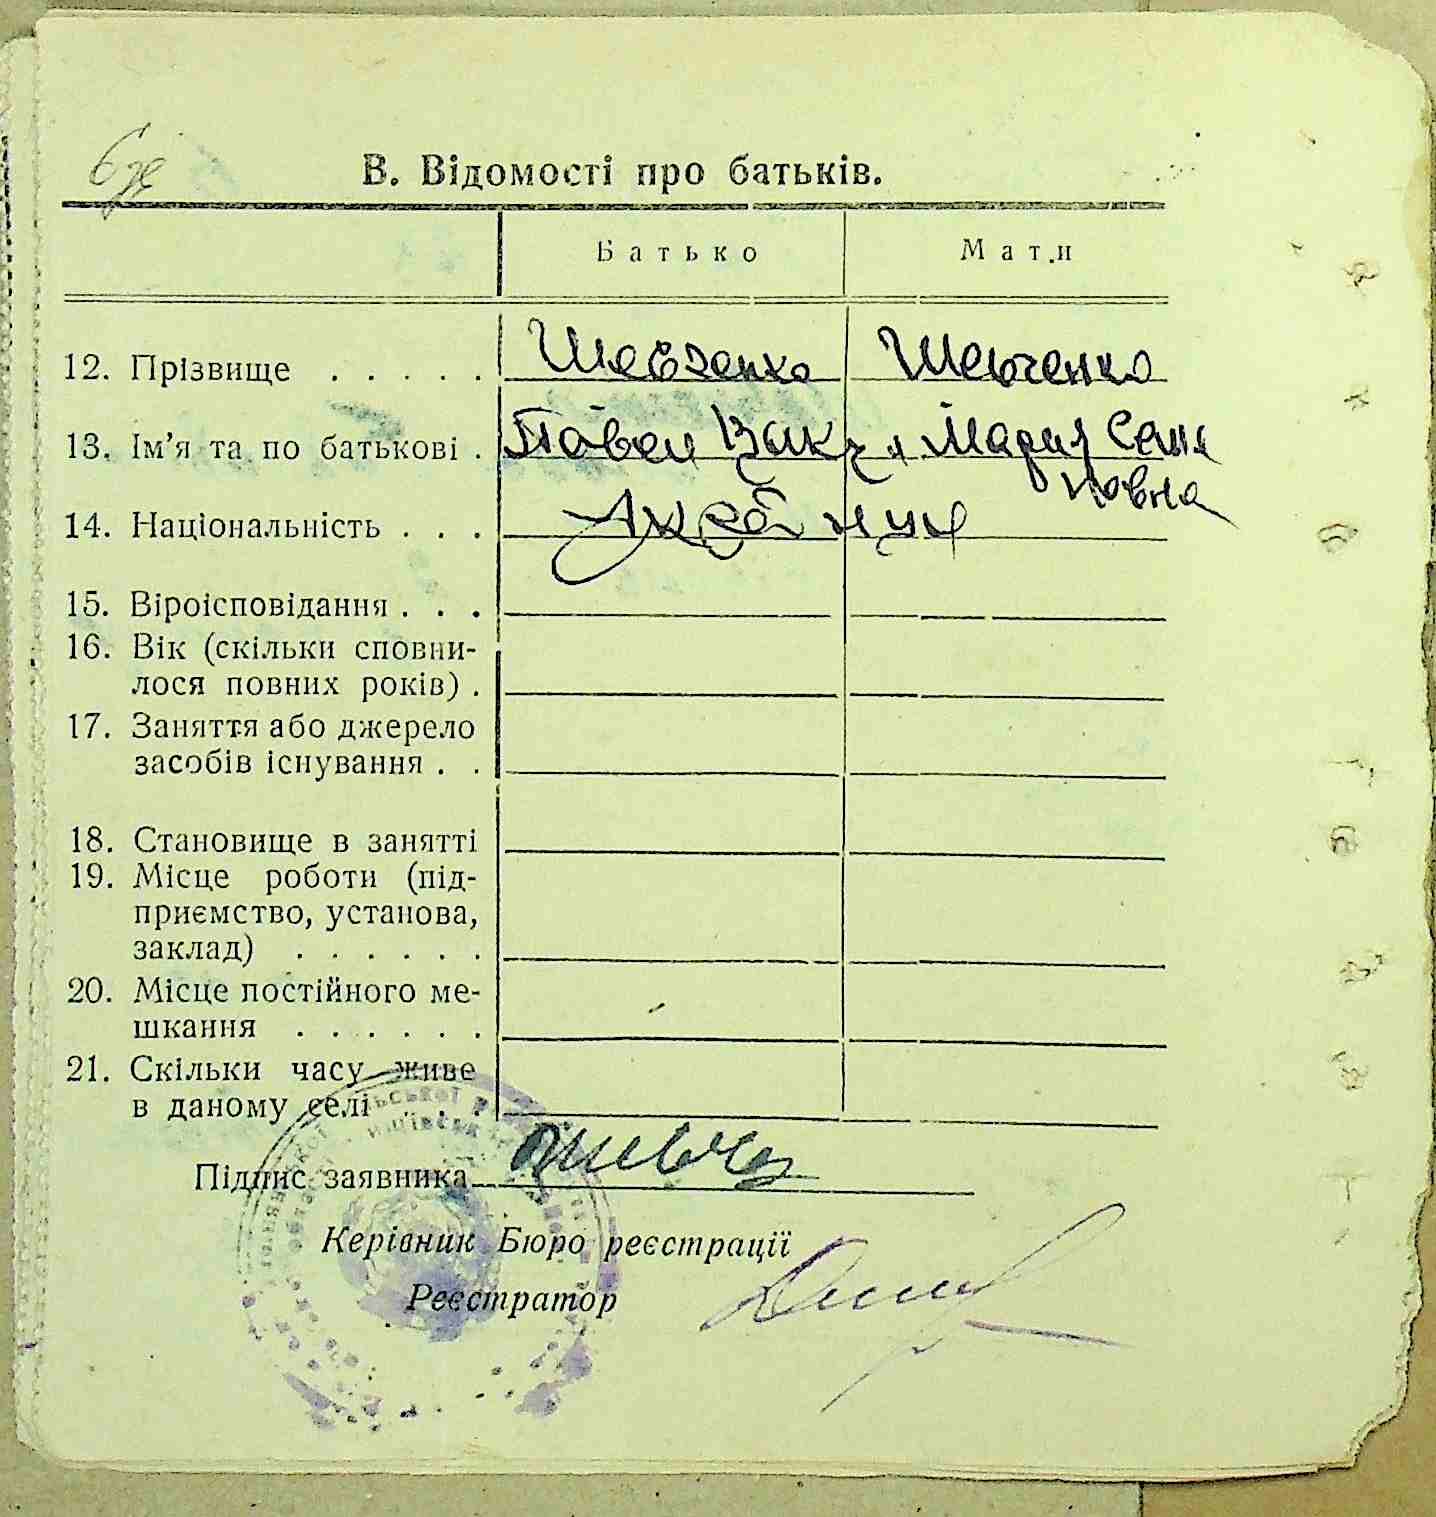 В. Відомості про батьків.
Батько Мати
12. Прізвище . . . . . Шевченко Шевченко
13. Ім'я та по батькові . Павел Мария Семе
новна
14. Національність . . .
15. Віроісповідання . . .
16. Вік (скільки сповни-
лося повних років) .
17. Заняття або джерело
засобів існування . .
18. Становище в занятті
19. Місце роботи (під-
приємство, установа,
заклад) . . . . . .
20. Місце постійного ме-
шкання . . . . . .
21. Скільки часу живе
в даному селі . . .
Підпис заявника
Керівник Бюро реєстрації
Реєстратор